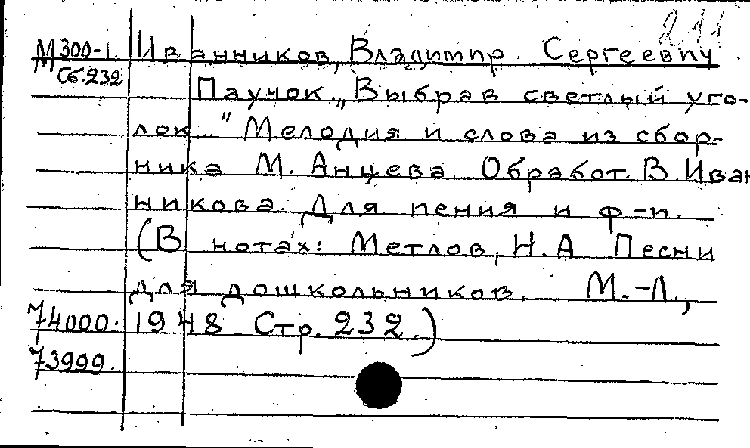 М300-1 Иванников, Владимир Сергеевич
Сб.232 Паучок „Выбрав светлый уго-
лок..." Мелодия и слова из сбор-
ника М. Анцева Обработ. В Иван
никова Для пения и ф-п.
(В нотах: Метлов, Н.А Песни
для дошкольников. М.-Л.,
74000. 1948 Стр. 232.)
73999.